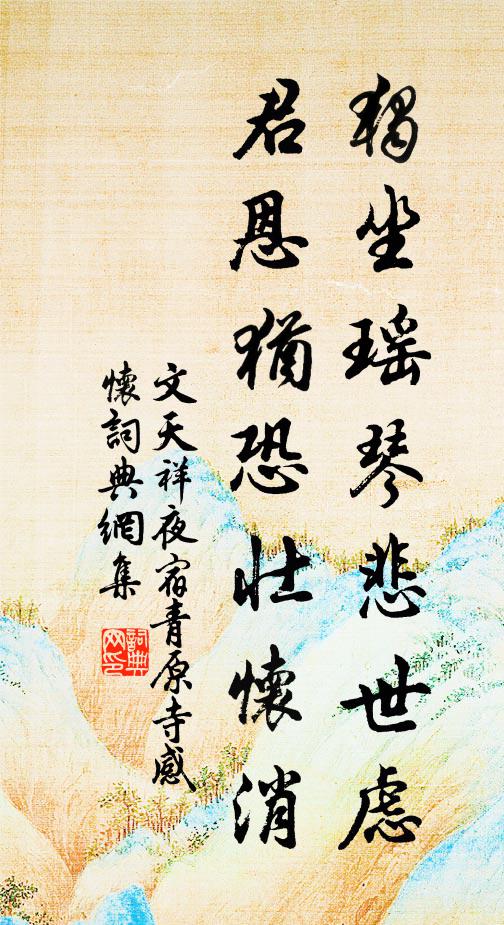 獨坐瑶琴悲世慮
君恩猶恐壯懷消
文天祥夜宿青原寺感
懷詞典網集
詞典
网印